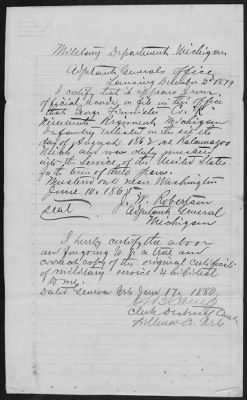 Military Department Michigan
Adjutant Generals Office
Lansing December 2d 1879
I certify that it appears from
official records on file in this office
that George Co "K"
Nineteenth Regiment Michigan
Infantry enlisted on the sixth
day of August 1862 at Kalamazoo
Mich and was duly mustered
into the service of the United States
for the term of three years.
Mustered out near Washington
June 10. 1865
Seal J. W. Robertson
Adjutant General
Michigan
I hereby certify the above
and forgoing to be a true and
correct copy of the original certificate
of military service exhibited
to me.
Dated Geneva Neb June 17th 1880.
Clerk District Court
Fillmore Co. Neb